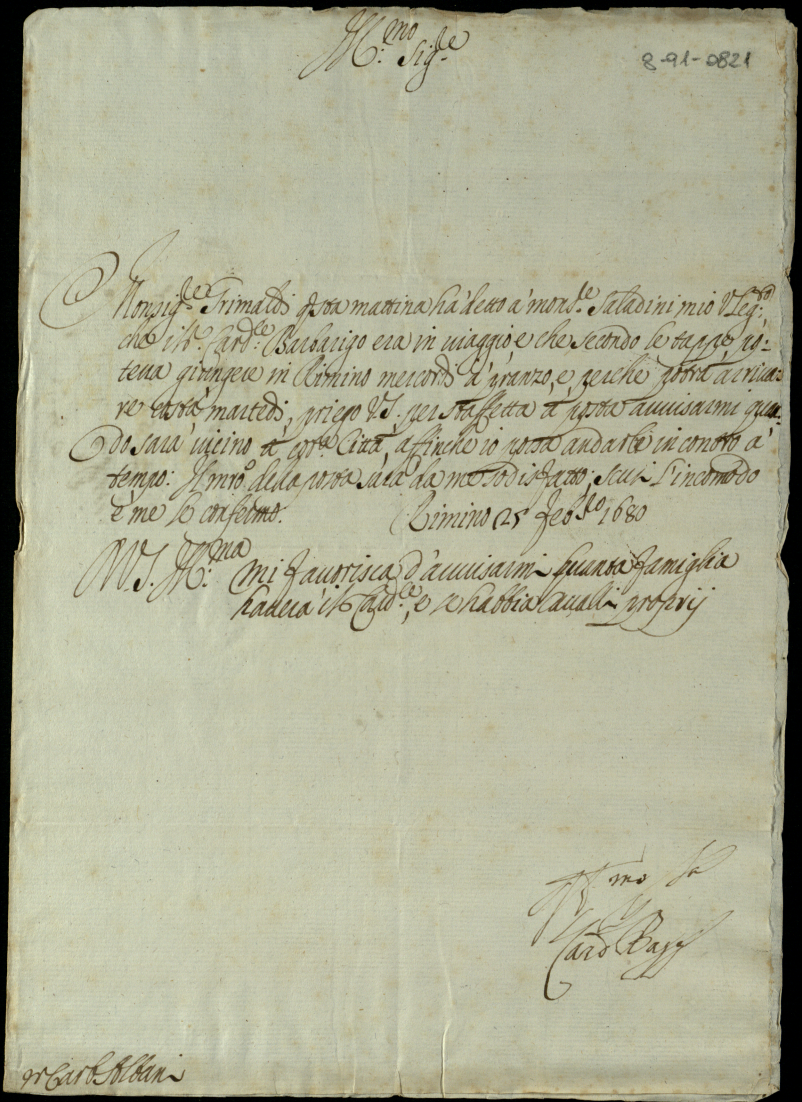 Ill:mo Sig:re
8-91-0821
Monsig:re Grimaldi q̃sta mattina hà detto à mons:re Saladini mio
che il S.r Card:le Barbarigo era in viaggio e che secondo le tappe po-
teua giungere in Rimino mercordì à pranzo, e perche potrà arriua-
re costà martedì, priego V.S. per staffetta à posta auuisarmi quan-
do sarà uicino à cotesta Città, affinche io possa andarli incontro à
tempo: Il mro della posta sarà da me sodisfatto; scusi l'incomodo
è me le confermo. Rimino 25 Feb:ro 1680
V.S. Ill:ma mi fauorisca d'auuisarmi quanta famiglia
hauerà il S.r Card:le, e se habbia Caualli proprij
Card
Sr Carlo Albani